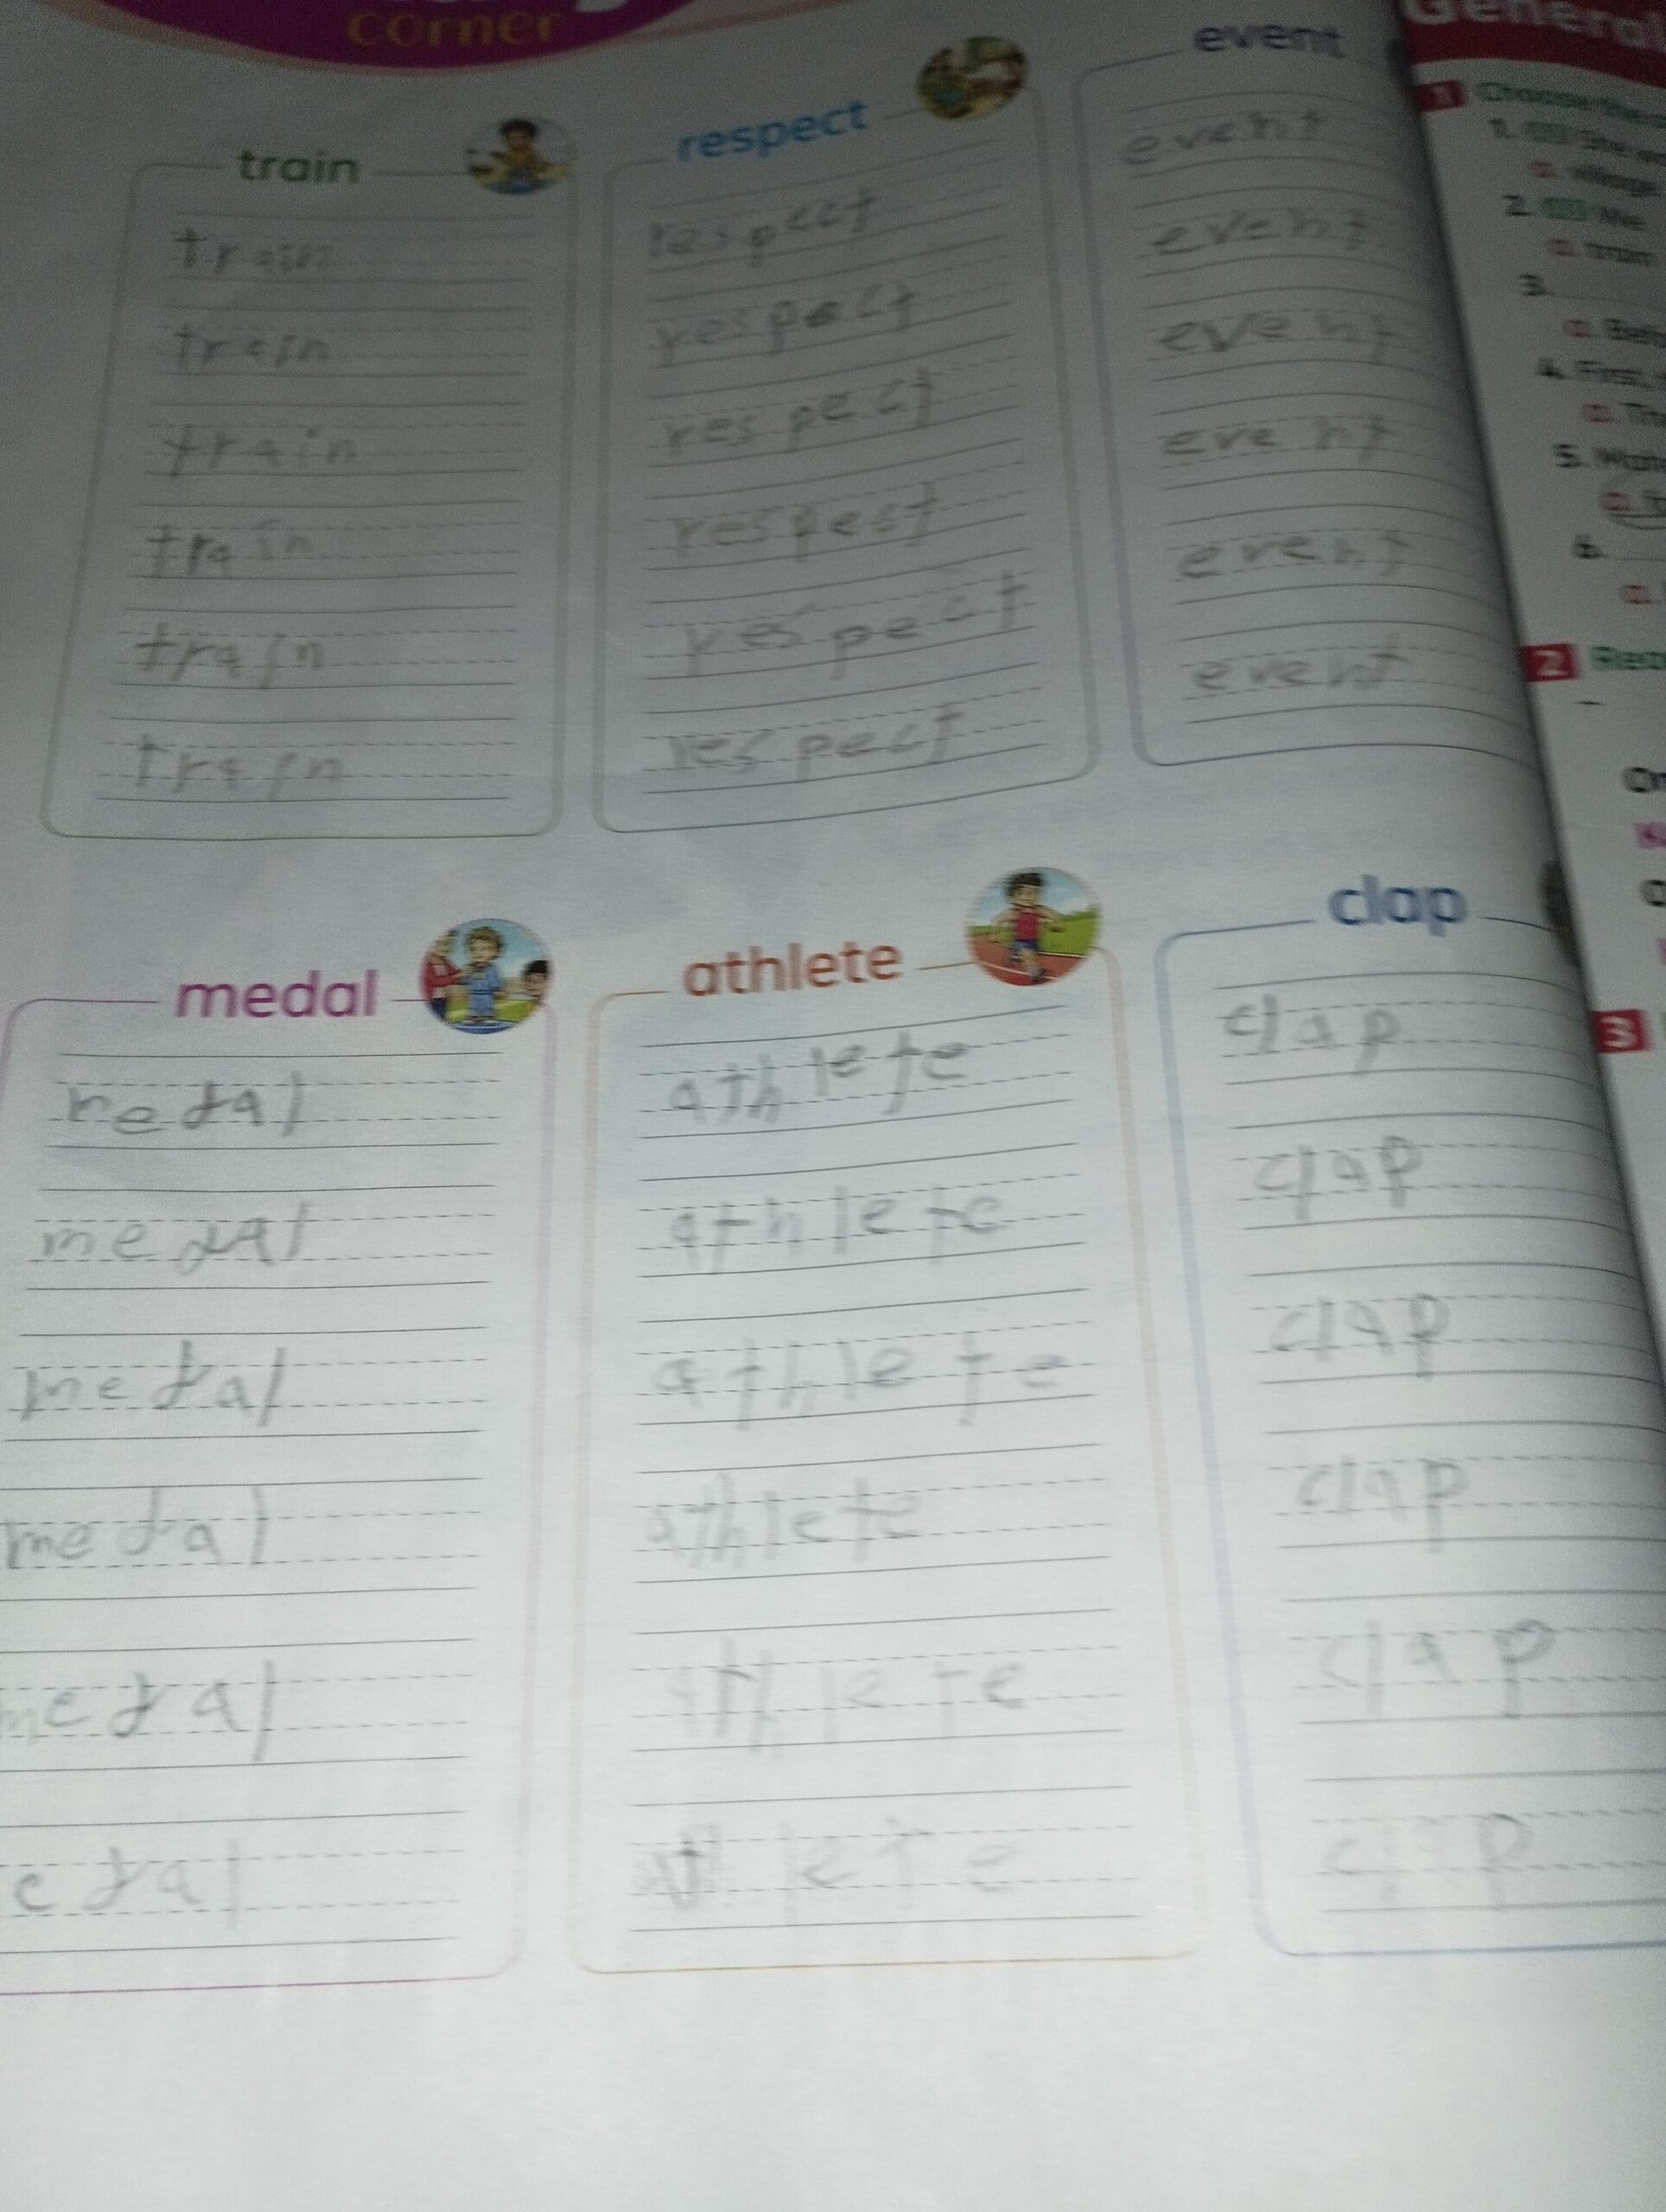 corner
train
train
train
train
train
train
train
respect
respect
respect
respect
respect
respect
respect
event
event
event
event
event
event
event
medal
medal
medal
medal
medal
medal
edal
athlete
athlete
athlete
athlete
athlete
athlete
athlete
clap
clap
clap
clap
clap
clap
clap
General
1 Choose the
1. She
a. village
2. We
a. train
3.
a. Befo
4. First,
a. Th
5.
a.
6.
a.
2
3